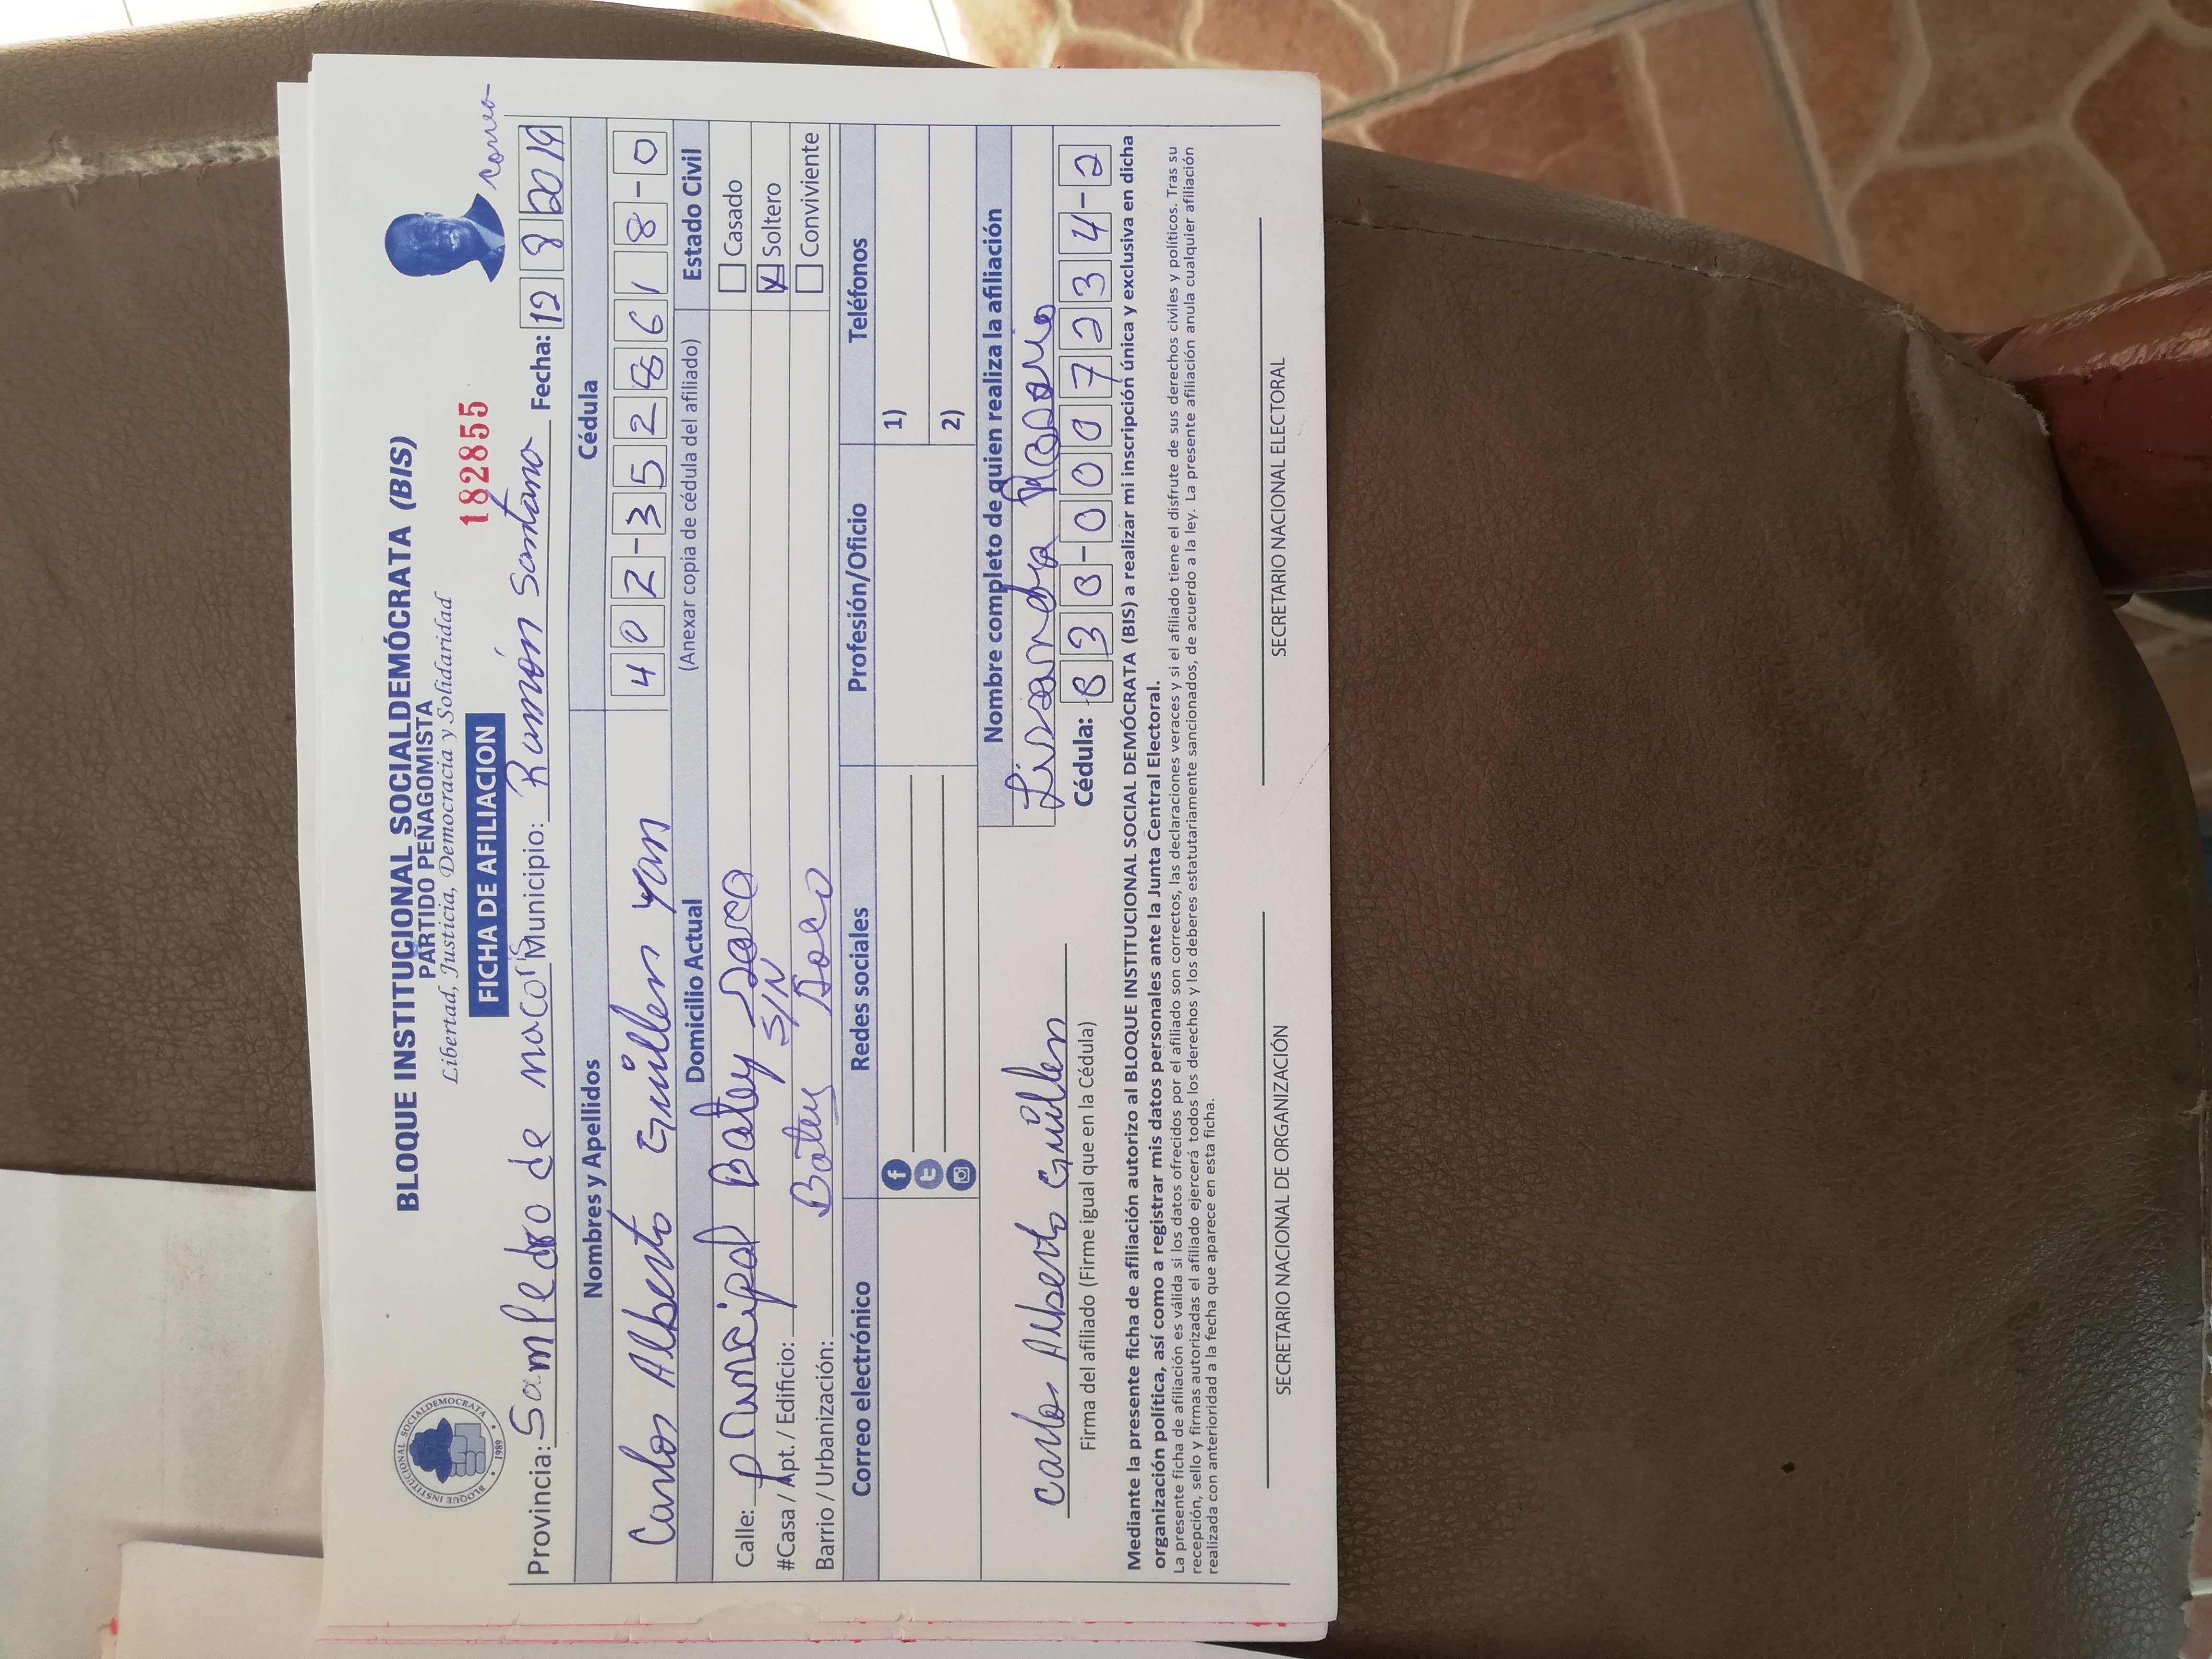 BLOQUE INSTITUCIONAL SOCIALDEMÓCRATA (BIS)
PARTIDO PEÑAGOMISTA
Libertad, Justicia, Democracia y Solidaridad
FICHA DE AFILIACION
182855
correo
BLOQUE INSTITUCIONAL SOCIALDEMOCRATA
1989
Provincia: San Pedro de macorís Municipio: Ramón Santana Fecha: 12 8 2019
Nombres y Apellidos Cédula
Carlos Alberto Guillen Yan 402-3528618-0
Domicilio Actual (Anexar copia de cédula del afiliado) Estado Civil
Calle: Principal Batey Soco Casado
#Casa / Apt. / Edificio: S/N X Soltero
Barrio / Urbanización: Batey Soco Conviviente
Correo electrónico Redes sociales Profesión/Oficio Teléfonos
1)
2)
Nombre completo de quien realiza la afiliación
Carlos Alberto Guillen
Firma del afiliado (Firme igual que en la Cédula)
Cédula: 8 3 0 - 0 0 0 7 2 3 4 - 2
Mediante la presente ficha de afiliación autorizo al BLOQUE INSTITUCIONAL SOCIAL DEMÓCRATA (BIS) a realizar mi inscripción única y exclusiva en dicha
organización política, así como a registrar mis datos personales ante la Junta Central Electoral.
La presente ficha de afiliación es válida si los datos ofrecidos por el afiliado son correctos, las declaraciones veraces y si el afiliado tiene el disfrute de sus derechos civiles y políticos. Tras su
recepción, sello y firmas autorizadas el afiliado ejercerá todos los derechos y los deberes estatutariamente sancionados, de acuerdo a la ley. La presente afiliación anula cualquier afiliación
realizada con anterioridad a la fecha que aparece en esta ficha.
SECRETARIO NACIONAL DE ORGANIZACIÓN SECRETARIO NACIONAL ELECTORAL